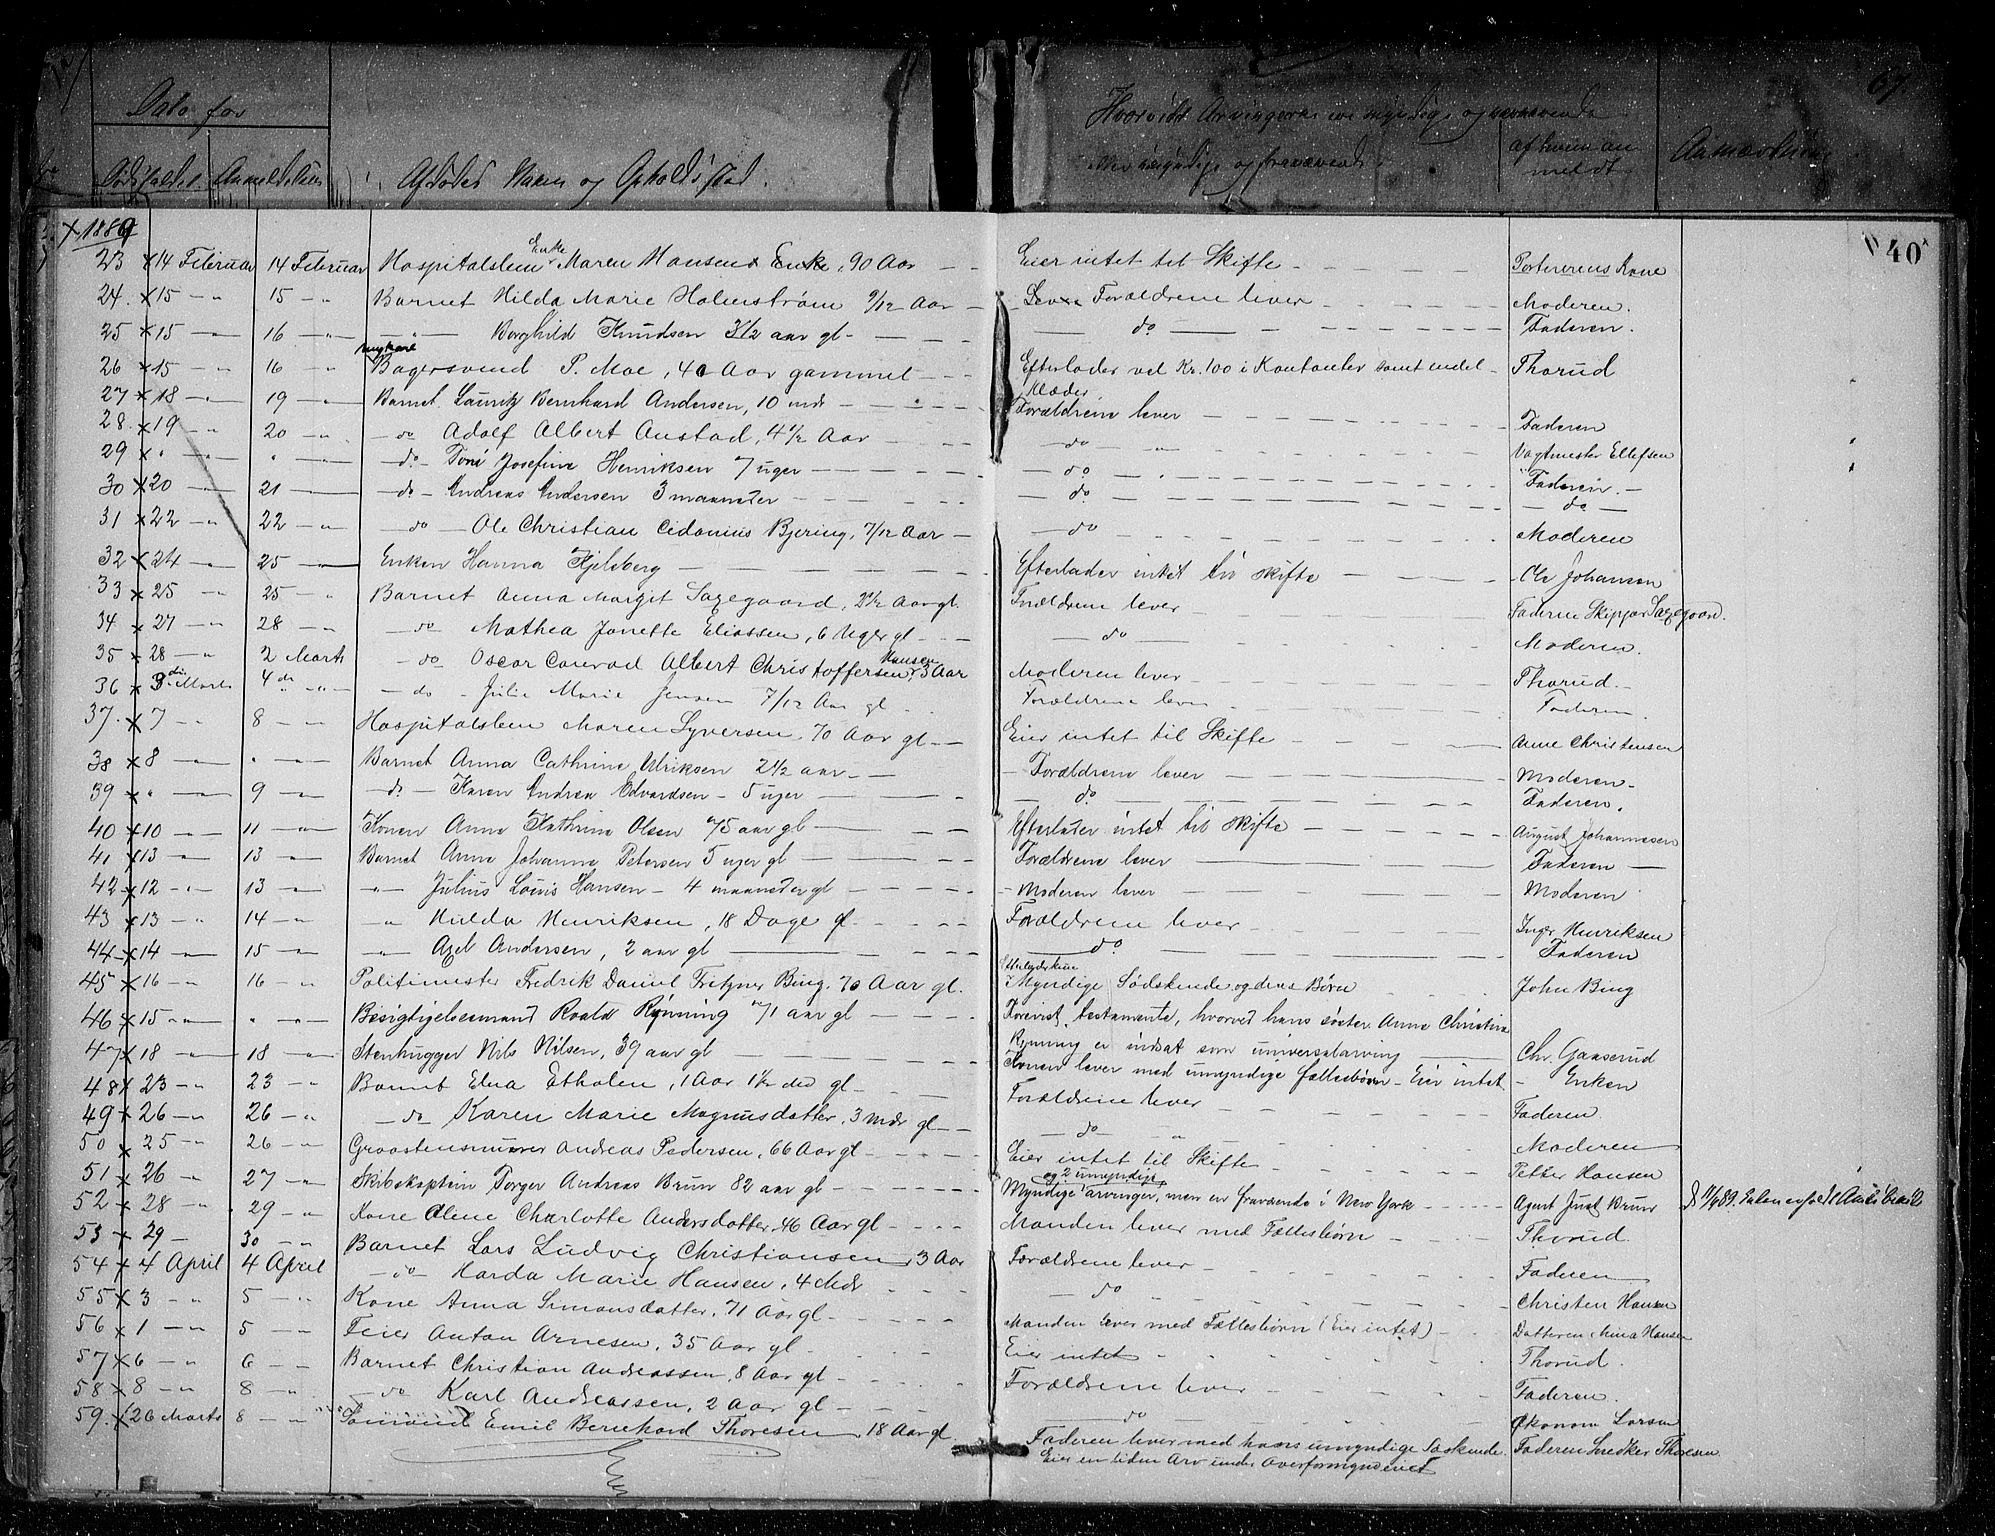 67.
Dato for
Hvorvidt Arvingerne ere myndige og nærværende
eller umyndige og fraværende.
af hvem an
meldt
Dødsfaldet. Anmeldelsen
Afdødes Navn og Opholdsstad.
40
x 1889
23 x 14 Februar 14 Februar Hospitalslem Enke Maren Hansen Enke, 90 Aar - - Eier intet til Skifte - - - Portnerens Kone
24. x 15 - " - 15 - " Barnet Hilda Marie Holmstrøm 9/12 Aar - Forældrene lever - - - Moderen.
25 x 15 - " - 16 - " - " - Borghild Knudsen 3 1/2 aar gl - - - do - - - Faderen.
26 x 15 - " - 16 - " ungkarl Bagersvend P. Moe, 40 Aar gammel - - - Efterlader vel Kr. 100 i Kontanter samt endel - Thorud
Klæder
27 x 18 - " - 19 - " - Barnet Lauritz Bernhard Andersen, 10 mdr - - - Forældrene lever - - - Faderen
28. x 19 - " - 20 - " - do Adolf Albert Anstad, 4 1/2 Aar - - - do - " - Vagtmester Ellefsen
29 x " - " - " - " - do - Josefine Henriksen 7 uger - - - do - - - Faderen. -
30 x 20 - " - 21 - " - do - Andreas Andersen 3 maaneder - - - do - - - do -
31 x 22 - " - 22 - " - do - Ole Christian Cidonius Bjering, 7/12 Aar - - do - - - Moderen
32 x 24 - " - 25 - " - Enken Hanna Kjelsberg - - - Efterlader intet til skifte - - - Ole Johansen
33 x 25 - " - 25 - " Barnet Anna Margit Saxegaard, 2 1/2 Aar gl. Forældrene lever - - - Faderen Skipper Saxegaard.
34 x 27 - " - 28 - " - do Mathea Jonette Eliassen, 6 Uger gl - - - do - - - Moderen.
35 x 28 - " 2 Marts - do Oscar Conrad Albert Christoffersen Hansen 3 Aar Moderen lever - - - Thorud. -
36 x 3die Marts 4de - " - - do - Julie Marie Jensen 7/12 Aar gl - Forældrene lever - - - Faderen.
37. x 7 - " 8 - " Hospitalslem Maren Syversen, 70 Aar gl - - Eier intet til Skifte - - - Anne Christensen
38 x 8 - " - " - " - Barnet Anna Cathrine Ulriksen 2 1/2 aar - - - Forældrene lever - - - Moderen -
39 x " - " - 9 - " - do - Karen Andrea Edvardsen - 5 uger - - - do - - - Faderen.
40 x 10 - " - 11 - " - Konen Anna Kathrine Olsen 75 aar gl - - - Efterlader intet til skifte - - - August Johannesen
41 x 13 - " - 13 - " - Barnet Anna Johanne Petersen 5 uger gl - - - Forældrene lever - - - Faderen -
42 x 12 - " - 13 - " - " - Julius Louis Hansen - 4 maaneder gl - - - Moderen lever - - - Moderen
43 x 13 - " 14 - " - " Hulda Henriksen, 18 Dage gl - - - Forældrene lever - - - Inger Henriksen
44 x 14 - " 15 - " - " Axel Andersen, 2 aar gl - - - do - - - Faderen
45 x 16 - " 16 - " Politimester Fredrik Daniel Fritzner Bing, 70 Aar gl. Efterladerkun Myndige Sødskende og deres Børn - John Bing
46 x 15 - " - " - " - Besigtigelsesmand Roald Rynning 71 aar gl - - - Forevist testamente, hvorved hans søster Anna Christine
Rynning er indsat som universalarving - Chr. Gaaserud
47 x 18 - " - 18 - " - Stenhugger Nils Nilsen, 39 aar gl - - - Konen lever med umyndige fællesbørn - Eier intet - Enken
48 x 23 - " 23 - " Barnet Elna Etholen, 1 Aar 1 1/2 Md gl - - Forældrene lever - - - Faderen
49 x 26 - " 26 - " - do Karen Marie Magnusdatter, 3 Mdr gl - - - do - " - Moderen
50 x 25 - " 26 - " Graastensmurer Andreas Pedersen, 66 Aar gl - - - Eier intet til Skifte - - - Petter Hansen
51 x 26 - " 27 - " Skibskaptein Torger Andreas Brun 82 aar gl - - - Myndige og 2 umyndige arvinger, men en fraværende i New York - - - Agent Just Brun
52 x 28 - " 29 - " Kone Olene Charlotte Andersdatter, 46 Aar gl - - - Manden lever med Fællesbørn - - - Thorud.
53 x 29 - 30 - " Barnet Lars Ludvig Christiansen, 3 Aar Forældrene lever - - - Faderen
54 x 4 April 4 April - do Harda Marie Hansen, 4 Mdr - - - do - - - Christen Hansen
55 x 3 - " 5 - " Kone Anna Simonsdatter, 71 Aar gl - - - Manden lever med Fællesbørn (Eier intet) - - Datteren Mina Hansen
56 x 1 - " 5 - " Feier Anton Arnesen, 35 Aar gl - - - Eier intet - - - Thorud.
57 x 6 - " 6 - " Barnet Christian Andreassen, 8 Aar gl - - - Forældrene lever - - - Faderen.
58 x 8 - " 8 - " - do Karl Andreassen, 2 Aar gl - - - do - - - Økonom Larsen
59. x 26 Marts 8 - " Sømand Emil Bernhard Thoresen 18 Aar gl. Faderen lever med hans umyndige Søskende. Faderen Snedker Thoresen
Eier en liden Arv under Overformynderiet